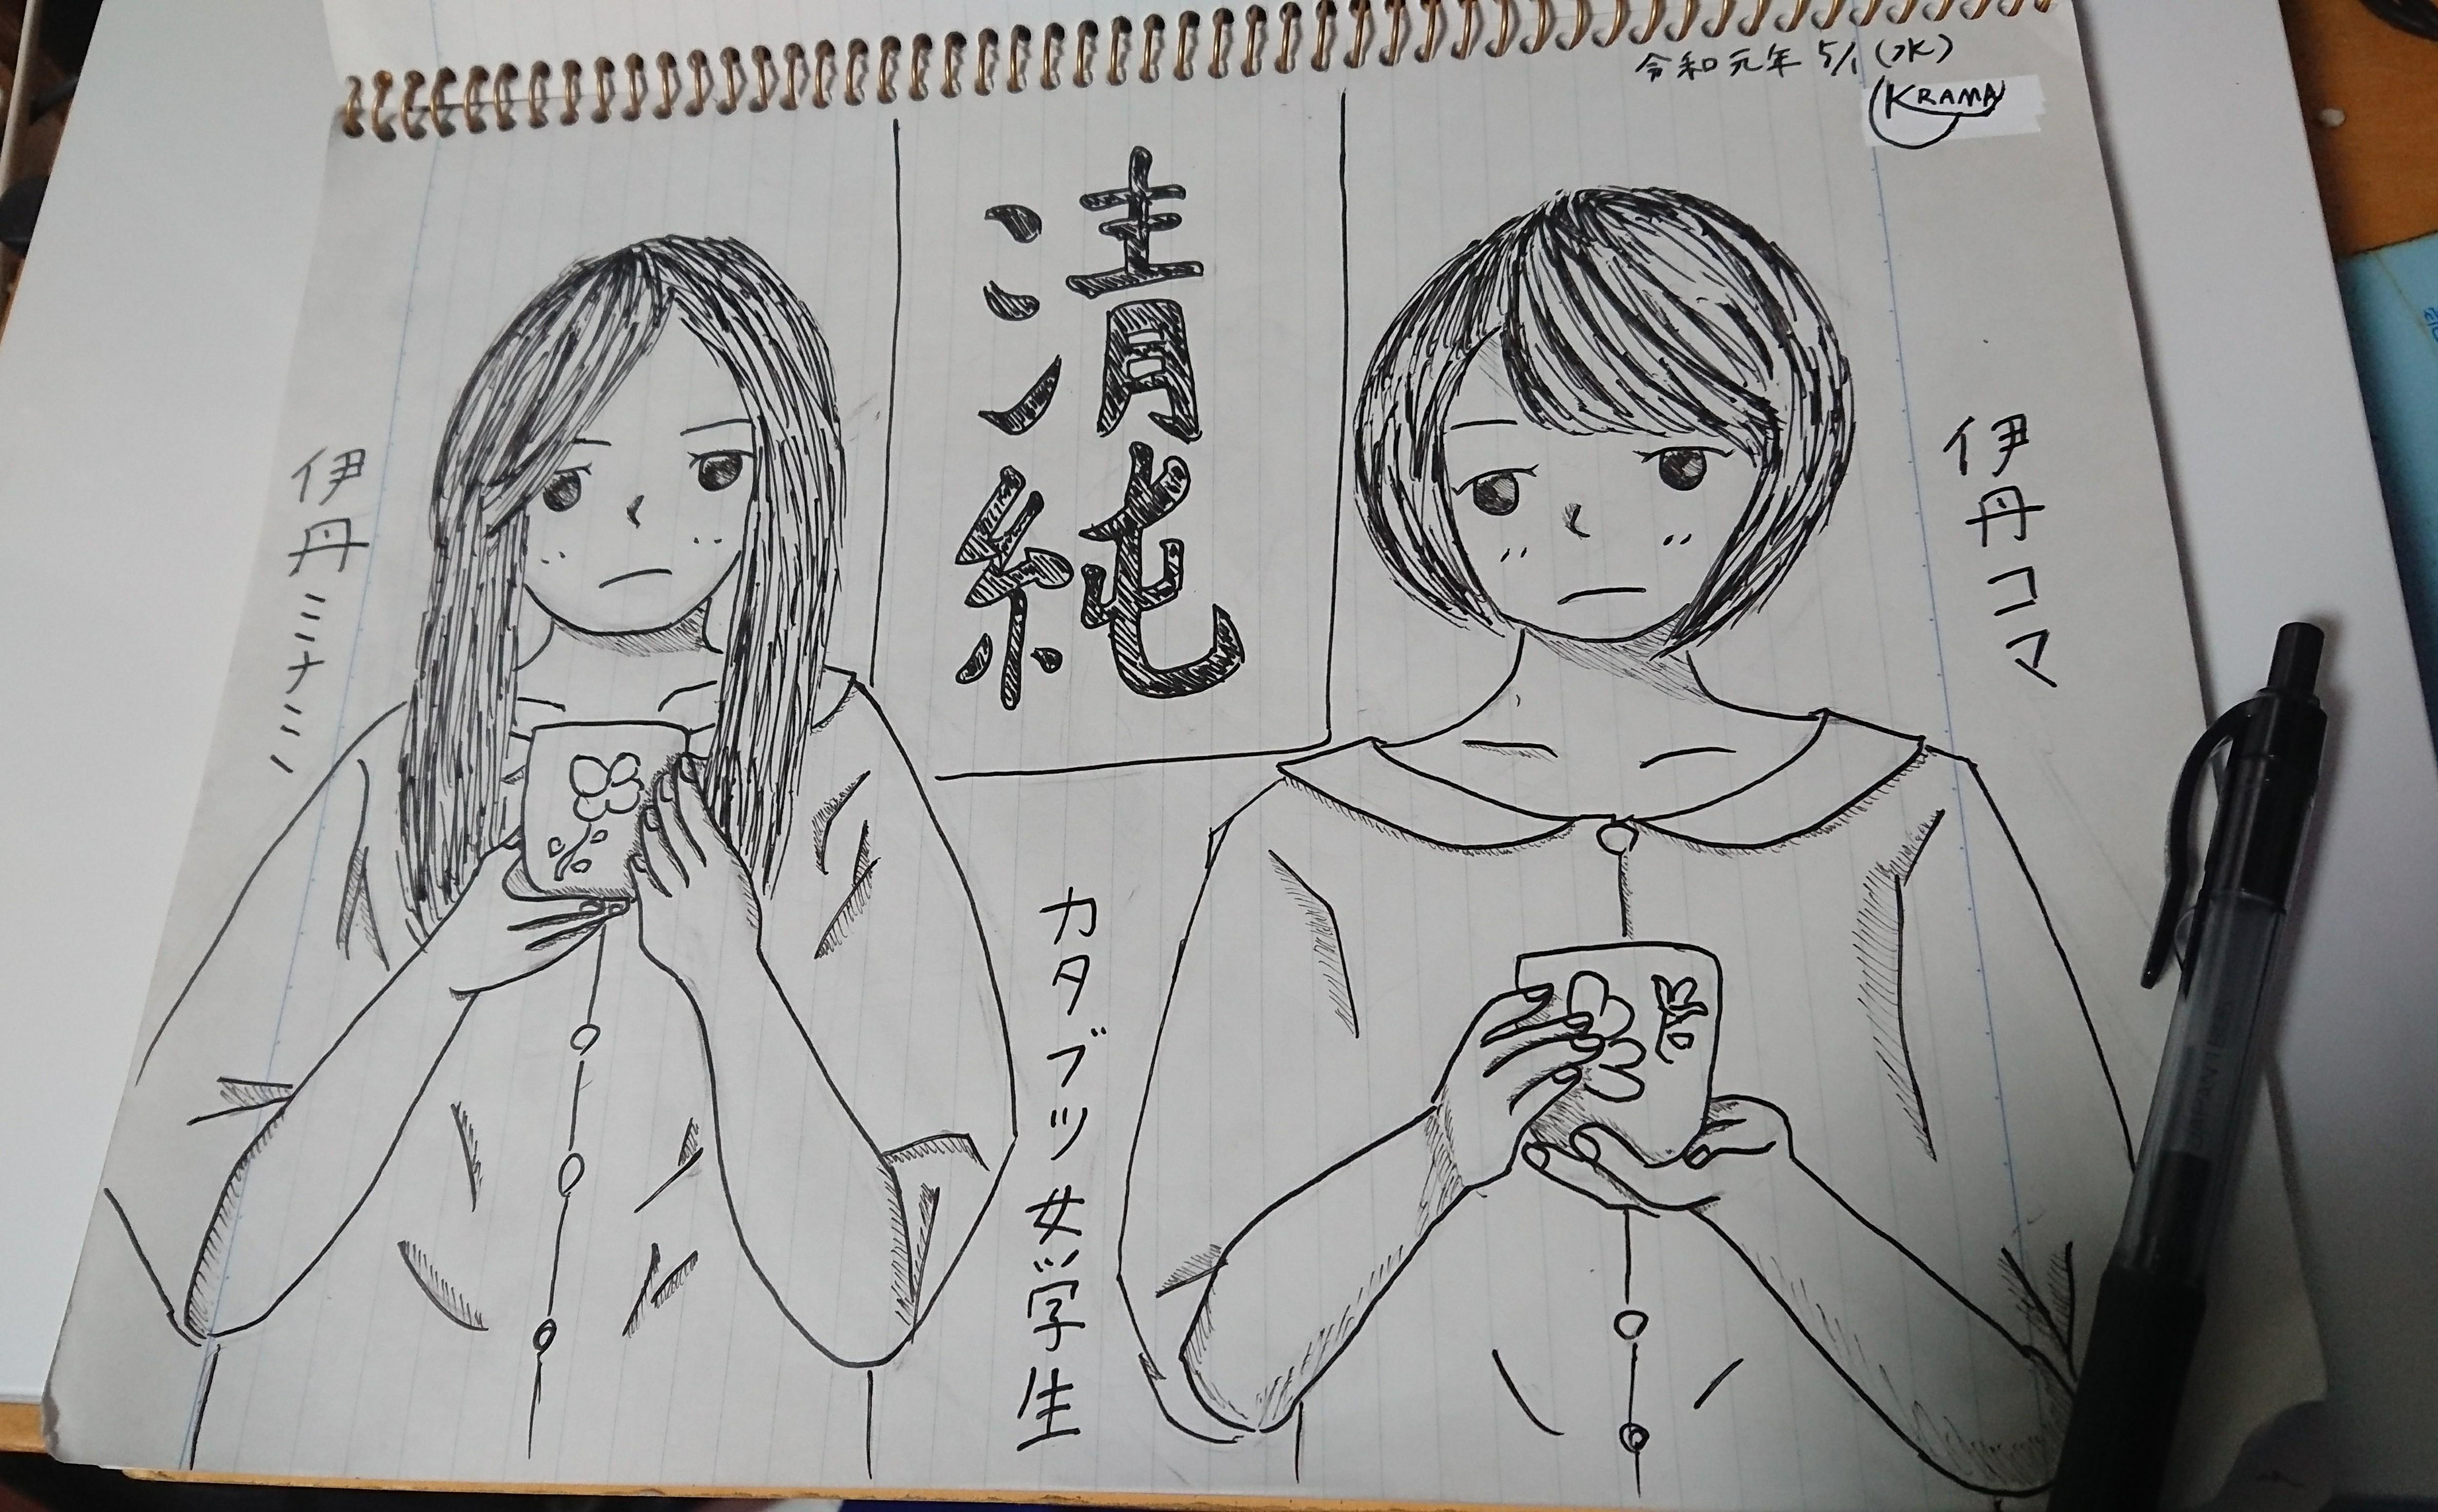 令和元年 5/1 (水)
KRAMA
清純
伊丹コマ
伊丹ミナミ
カタブツ女学生